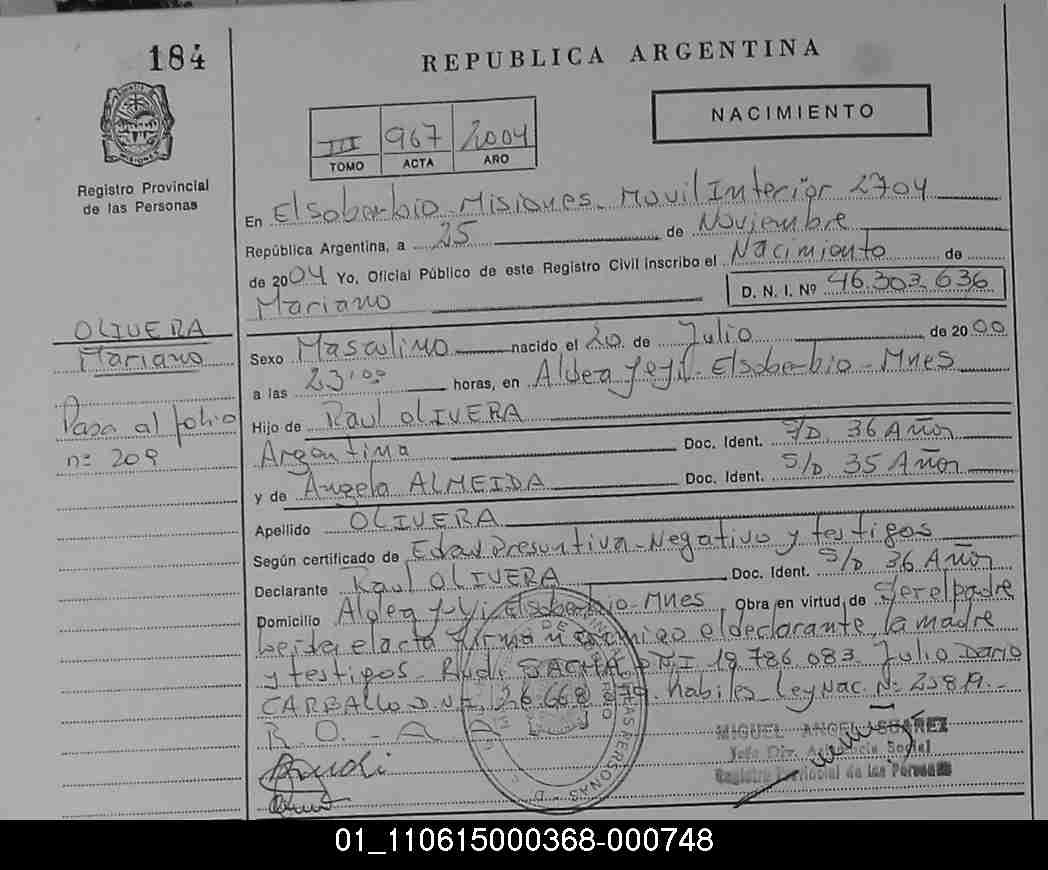 184
REPUBLICA ARGENTINA
NACIMIENTO
III 967 2004
TOMO ACTA AÑO
Registro Provincial
de las Personas
En Elsoberbio Misiones. Movil Interior 2704
República Argentina, a 25 de Noviembre
de 2004 Yo, Oficial Público de este Registro Civil inscribo el Nacimiento de
Mariano D. N. I. Nº 46.303.636
OLIVERA
Mariano
Sexo Masculino nacido el 20 de Julio de 2000
a las 23'00 horas, en Aldea Yeyi - Elsoberbio - Mnes
Pasa al folio
nº 209
Hijo de Raul OLIVERA
Argentina Doc. Ident. S/D 36 Años
y de Angela ALMEIDA Doc. Ident. S/D 35 Años
Apellido OLIVERA
Según certificado de Edad Presuntiva - Negativo y testigos
Declarante Raul OLIVERA Doc. Ident. S/D 36 Años
Domicilio Aldea Yeyi Elsoberbio - Mnes Obra en virtud de Ser el padre
leida el acta firman conmigo el declarante, la madre
y testigos. SACHA DNI 18.786.083. Julio Dario
CARBALLO DNI, 26.668.379. habiles Ley Nac. Nº
R. O. - A A
MIGUEL ANGEL SUAREZ
Jefe Div. Asistencia Social
Registro Provincial de las Personas
01_110615000368-000748